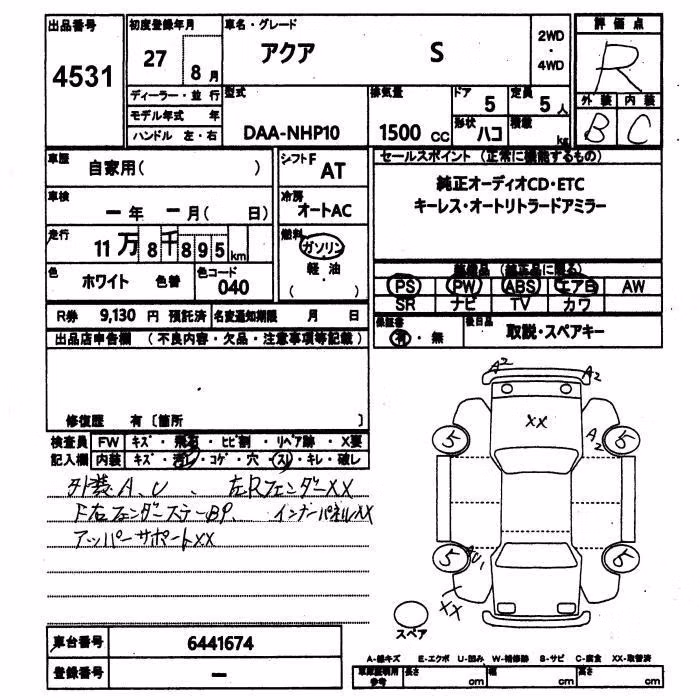 出品番号 初度登録年月 車名・グレード 評価点
4531 27 8月 アクア S 2WD・4WD R
ディーラー・並行 型式 排気量 ドア 定員 外装 内装
モデル年式 年 5 5人 B C
ハンドル 左・右 DAA-NHP10 1500 CC 形状 ハコ 積載 kg
車歴 自家用( ) シフト F AT セールスポイント (正常に機能するもの)
車検 ー年 ー月( 日) 冷房 オートAC 純正オーディオCD・ETC
キーレス・オートリトラードアミラー
走行 11万8千895km 燃料 ガソリン
軽・油
( ・ )
色 ホワイト 色替 色コード 040 装備品 (純正品に限る)
PS PW ABS エアB AW
SR ナビ TV カワ
R券 9,130 円 預託済 名変通知期限 月 日 保証書 有・無 後日品 取説・スペアキー
出品店申告欄 (不良内容・欠品・注意事項等記載)
修復歴 有〔箇所 〕
検査員 FW キズ・飛石・ヒビ割・リペア跡・X要
記入欄 内装 キズ・汚レ・コゲ・穴・スレ・キレ・破レ
外装A、U、左Rフェンダーxx
F右フェンダーステーBP、インナーパネルxx
アッパーサポートxx
A2 A2
xx
5 A2 5
5 AU1 5
xx
スペア
車台番号 6441674
登録番号 ー
A-線キズ E-エクボ U-凹み W-補修跡 S-サビ C-腐食 XX-取替済
車庫証明用参考 長さ cm 幅 cm 高さ cm